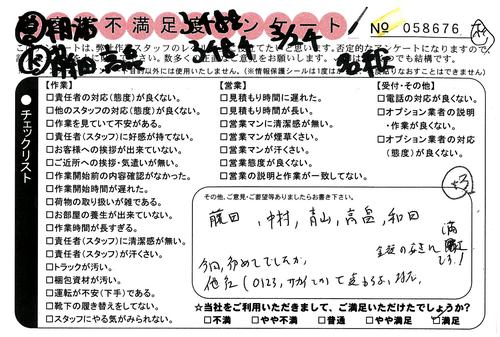 不満足度アンケート
№ 058676
チェックリスト
【作業】
□責任者の対応(態度)が良くない。
□他のスタッフの対応(態度)が良くない。
□作業を見ていて不安がある。
□責任者(スタッフ)に好感が持てない。
□お客様への挨拶が出来ていない。
□ご近所への挨拶・気遣いが無い。
□作業開始前の内容確認がなかった。
□作業開始時間が遅れた。
□荷物の取り扱いが雑である。
□お部屋の養生が出来ていない。
□作業時間が長すぎる。
□責任者(スタッフ)に清潔感が無い。
□責任者(スタッフ)が汗くさい。
□トラックが汚い。
□梱包資材が汚い。
□運転が不安(下手)である。
□靴下の履き替えをしてない。
□スタッフにやる気がみられない。
【営業】
□見積もり時間に遅れた。
□見積もり時間が長い。
□営業マンに清潔感が無い。
□営業マンが煙草くさい。
□営業マンが汗くさい。
□営業態度が良くない。
□営業の説明と作業が一致してない。
【受付・その他】
□電話の対応が良くない。
□オプション業者の説明
・作業が良くない。
□オプション業者の対応
(態度)が良くない。
その他、ご意見・ご要望等ありましたらお書き下さい。
藤田、中村、青山、高畠、和田
今回、初めてでしたが、
☆当社をご利用いただきまして、ご満足いただけたでしょうか?
□不満 □やや不満 □普通 □やや満足 □満足